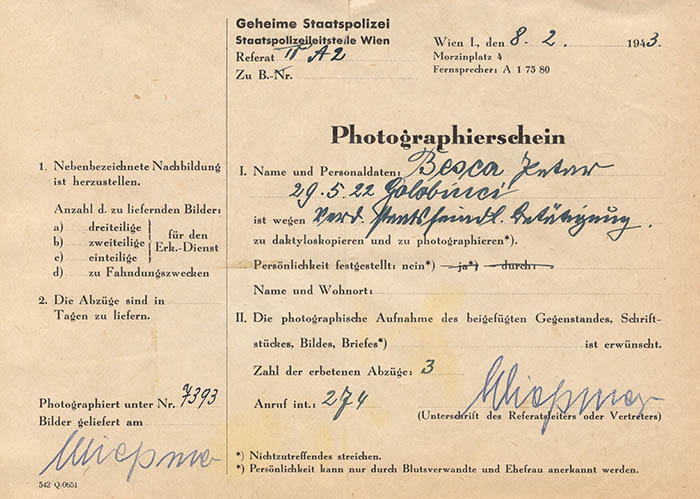 Geheime Staatspolizei
Staatspolizeileitstelle Wien
Referat IV A2
Zu B.-Nr.
Wien I., den 8. 2. 1943.
Morzinplatz 4
Fernsprecher: A 1 75 80
Photographierschein
1. Nebenbezeichnete Nachbildung
ist herzustellen.
Anzahl d. zu liefernden Bilder:
a) dreiteilige
b) zweiteilige
c) einteilige
für den
Erk.-Dienst
d) zu Fahndungszwecken
2. Die Abzüge sind in
Tagen zu liefern.
Photographiert unter Nr. 7393
Bilder geliefert am
542 Q/0651
I. Name und Personaldaten: Besca Petar
29.5.22 Golobinci
ist wegen Verd. staatsfeindl. Betätigung.
zu daktyloskopieren und zu photographieren*).
Persönlichkeit festgestellt: nein*) ja*) durch:
Name und Wohnort:
II. Die photographische Aufnahme des beigefügten Gegenstandes, Schrift-
stückes, Bildes, Briefes*) ist erwünscht.
Zahl der erbetenen Abzüge: 3
Anruf int.: 274
(Unterschrift des Referatsleiters oder Vertreters)
*) Nichtzutreffendes streichen.
*) Persönlichkeit kann nur durch Blutsverwandte und Ehefrau anerkannt werden.